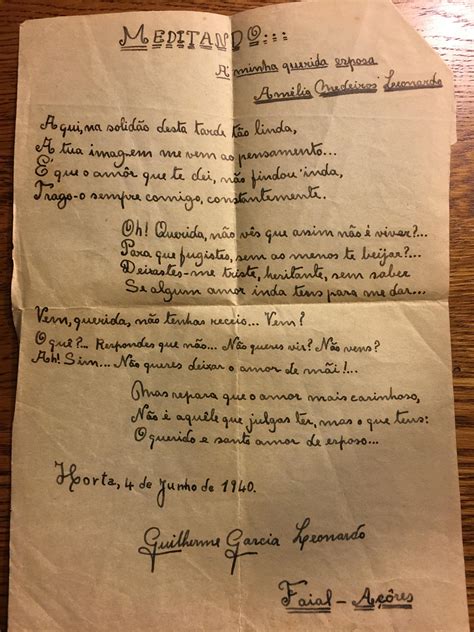 MEDITANDO...
A' minha querida esposa
Amélia Medeiros Leonardo
Aqui, na solidão desta tarde tão linda,
A tua imagem me vem ao pensamento...
É que o amôr que te dei, não findou 'inda,
Trago-o sempre comigo, constantemente.
Oh! Querida, não vês que assim não é viver?...
Para que fugistes, sem ao menos te beijar?...
Deixastes-me triste, hesitante, sem saber
Se algum amor inda tens para me dar...
Vem, querida, não tenhas receio... Vem?
O quê?... Respondes que não... Não queres vir? Não vens?
Ah! Sim... Não queres deixar o amor de mãi!...
Mas repara que o amor mais carinhoso,
Não é aquêle que julgas ter, mas o que tens:
O querido e santo amor de esposo...
Horta, 4 de Junho de 1940.
Guilherme Garcia Leonardo
Faial - Açôres